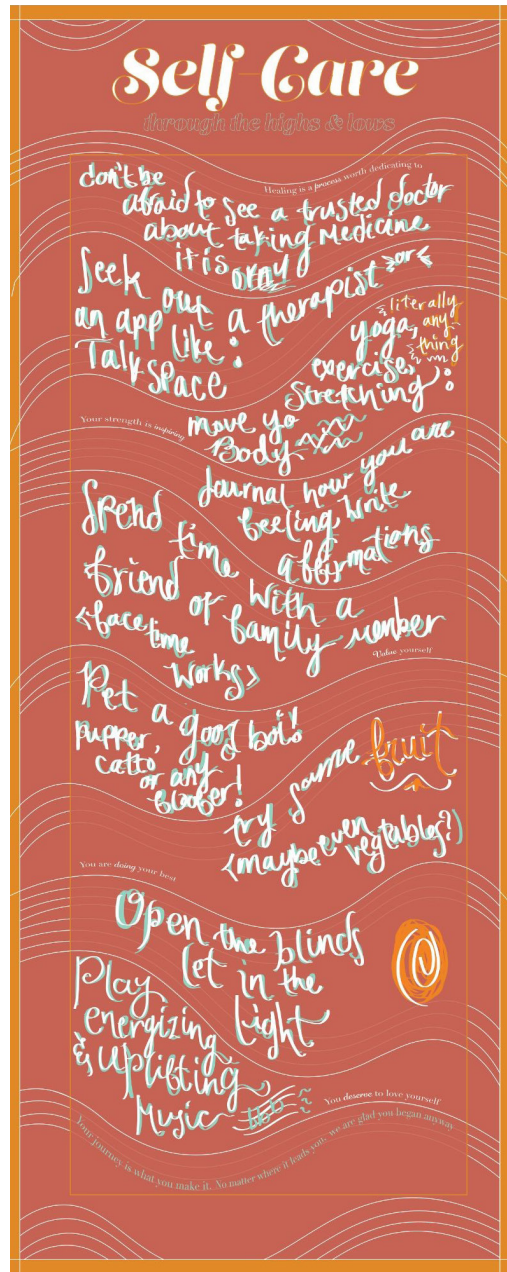 Self-Care
through the highs & lows
Healing is a process worth dedicating to
don't be
afraid to see a trusted doctor
about taking medicine
it is okay
Seek out a therapist or
an app like:
Talkspace
yoga, literally
any
thing
exercise,
stretching:
move yo
Body
Your strength is inspiring
Journal how you are
feeling, write
affirmations
Spend time with a
friend or family member
<facetime
works>
Value yourself
Pet a good boi!
pupper,
catto
or any
bloofer!
try some fruit
(maybe even vegtables?)
You are doing your best
Open the blinds
let in the
light
Play
energizing
& uplifting
Music
You deserve to love yourself
Your journey is what you make it. No matter where it leads you, we are glad you began anyway